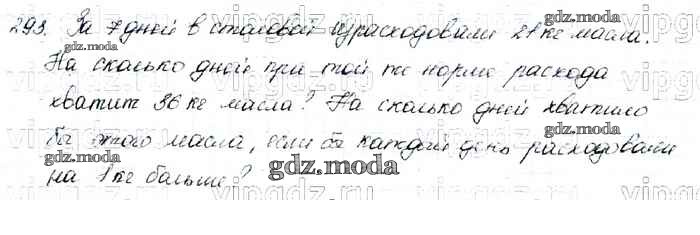 293. За 7 дней в столовой израсходовали 21 кг масла.
На сколько дней при той же норме расхода
хватит 36 кг масла? На сколько дней хватило
бы этого масла, если бы каждый день расходовали
на 1 кг больше?
gdz.moda
gdz.moda
gdz.moda
gdz.moda
gdz.moda
gdz.moda